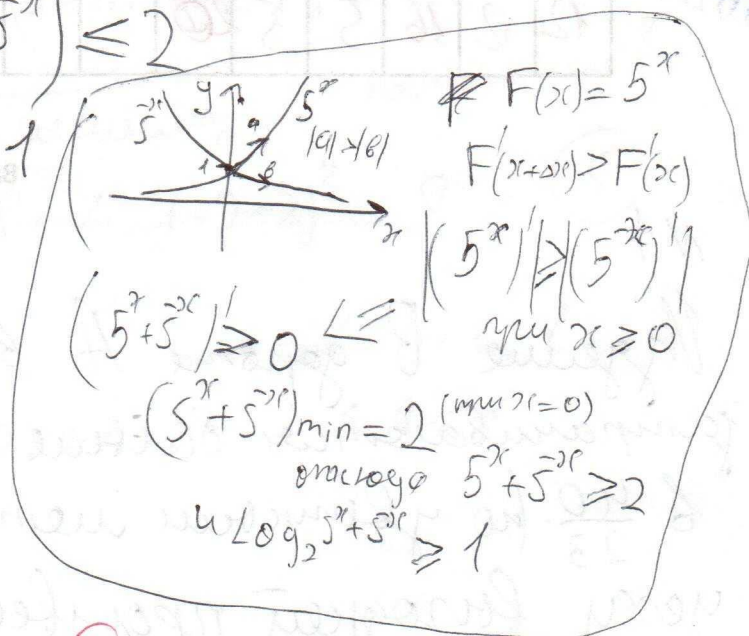 ) ≤ 2
1
y
5^-x
5^x
a
|a|>|b|
1
b
x
F(x) = 5^x
F'(x+Δx) > F'(x)
|(5^x)'| ≥ |(5^-x)'|
при x ≥ 0
(5^x + 5^-x)' ≥ 0 <=
(5^x + 5^-x) min = 2 (при x=0)
отсюда 5^x + 5^-x ≥ 2
и Log₂ 5^x + 5^-x ≥ 1